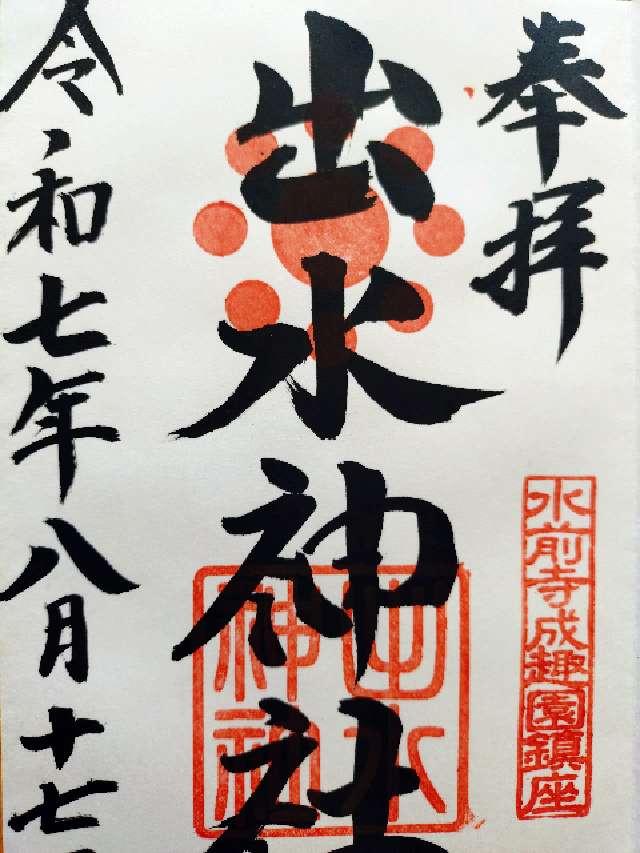 奉拝
水前寺成趣園鎮座
出水神社
出水神社
令和七年八月十七